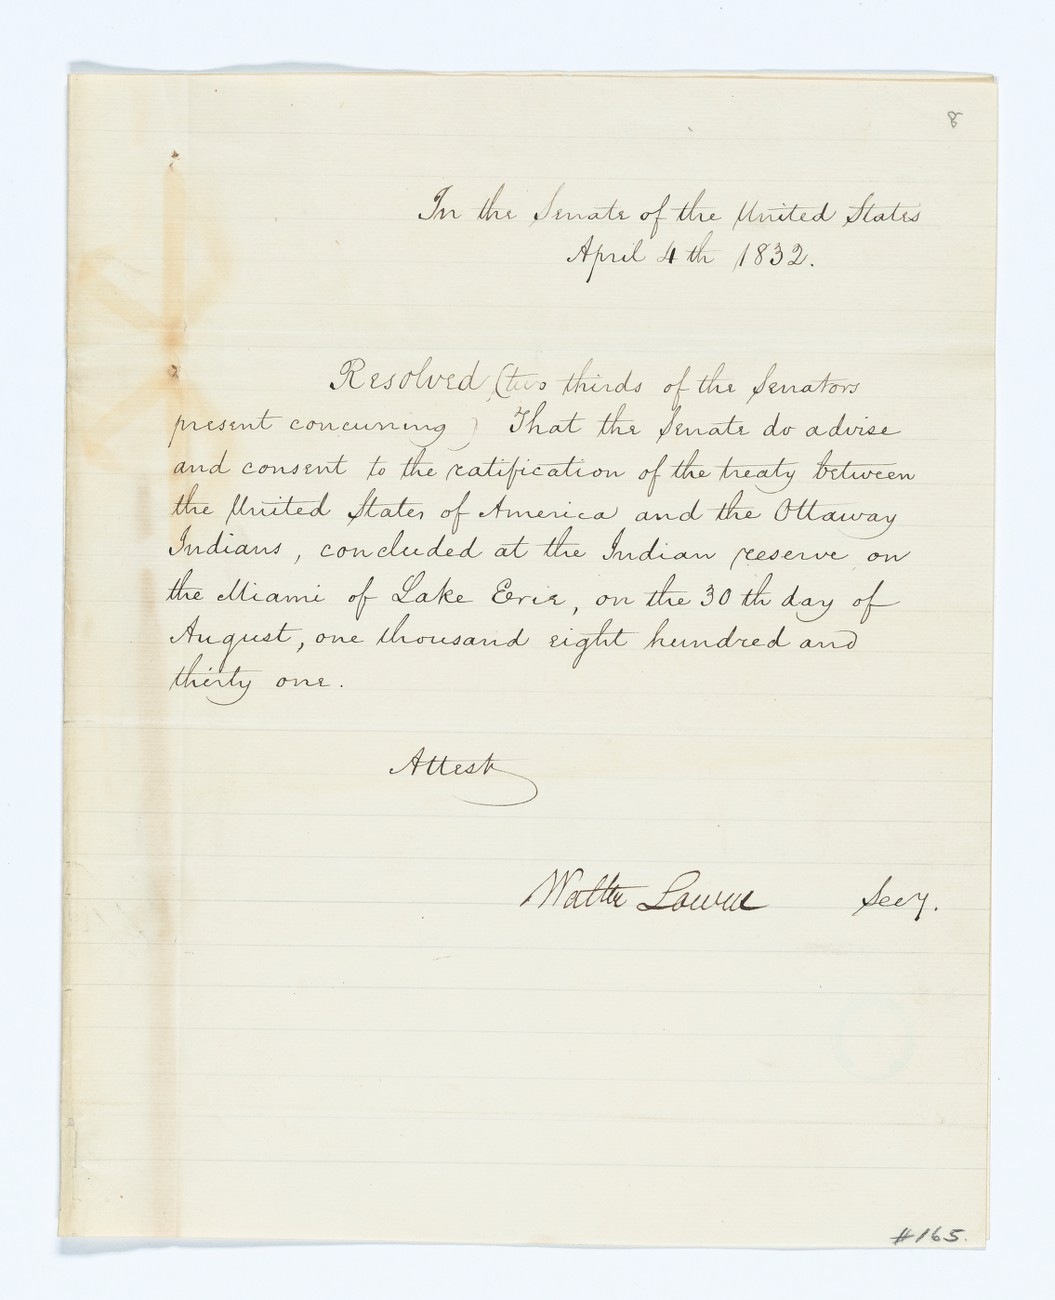 8
In the Senate of the United States
April 4th 1832.
Resolved (two thirds of the Senators
present concurring) That the Senate do advise
and consent to the ratification of the treaty between
the United States of America and the Ottaway
Indians, concluded at the Indian reserve on
the Miami of Lake Erie, on the 30th day of
August, one thousand eight hundred and
thirty one.
Attest
Walter Lowrie Secy.
#165.